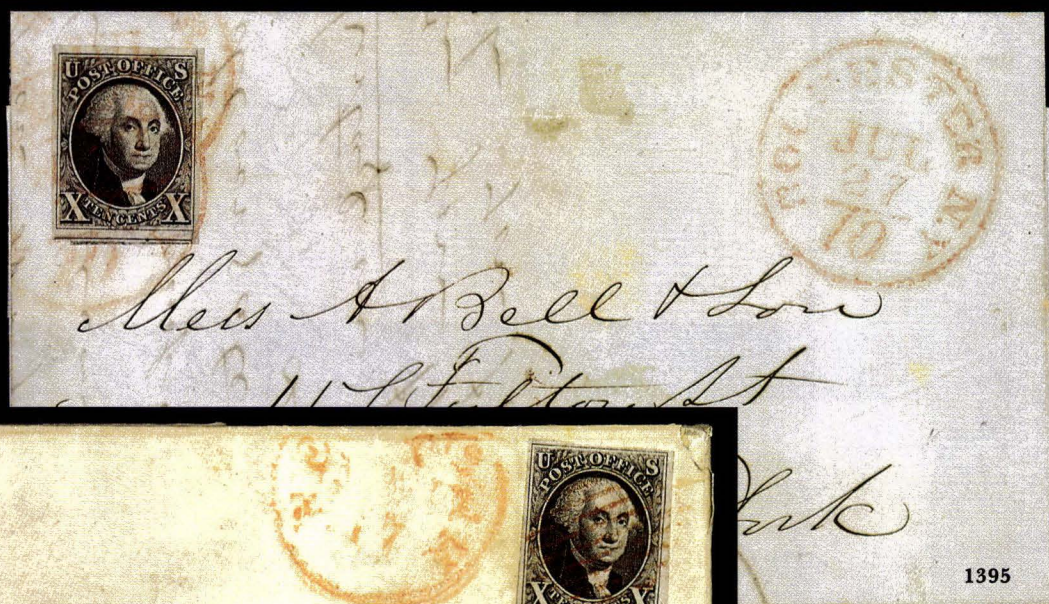 U S
POST OFFICE
X TEN CENTS X
ROCHESTER N.Y
JUL
27
10
Mess A Bell & Son
Fulton St
York
1395
U S
POST OFFICE
X TEN CENTS X